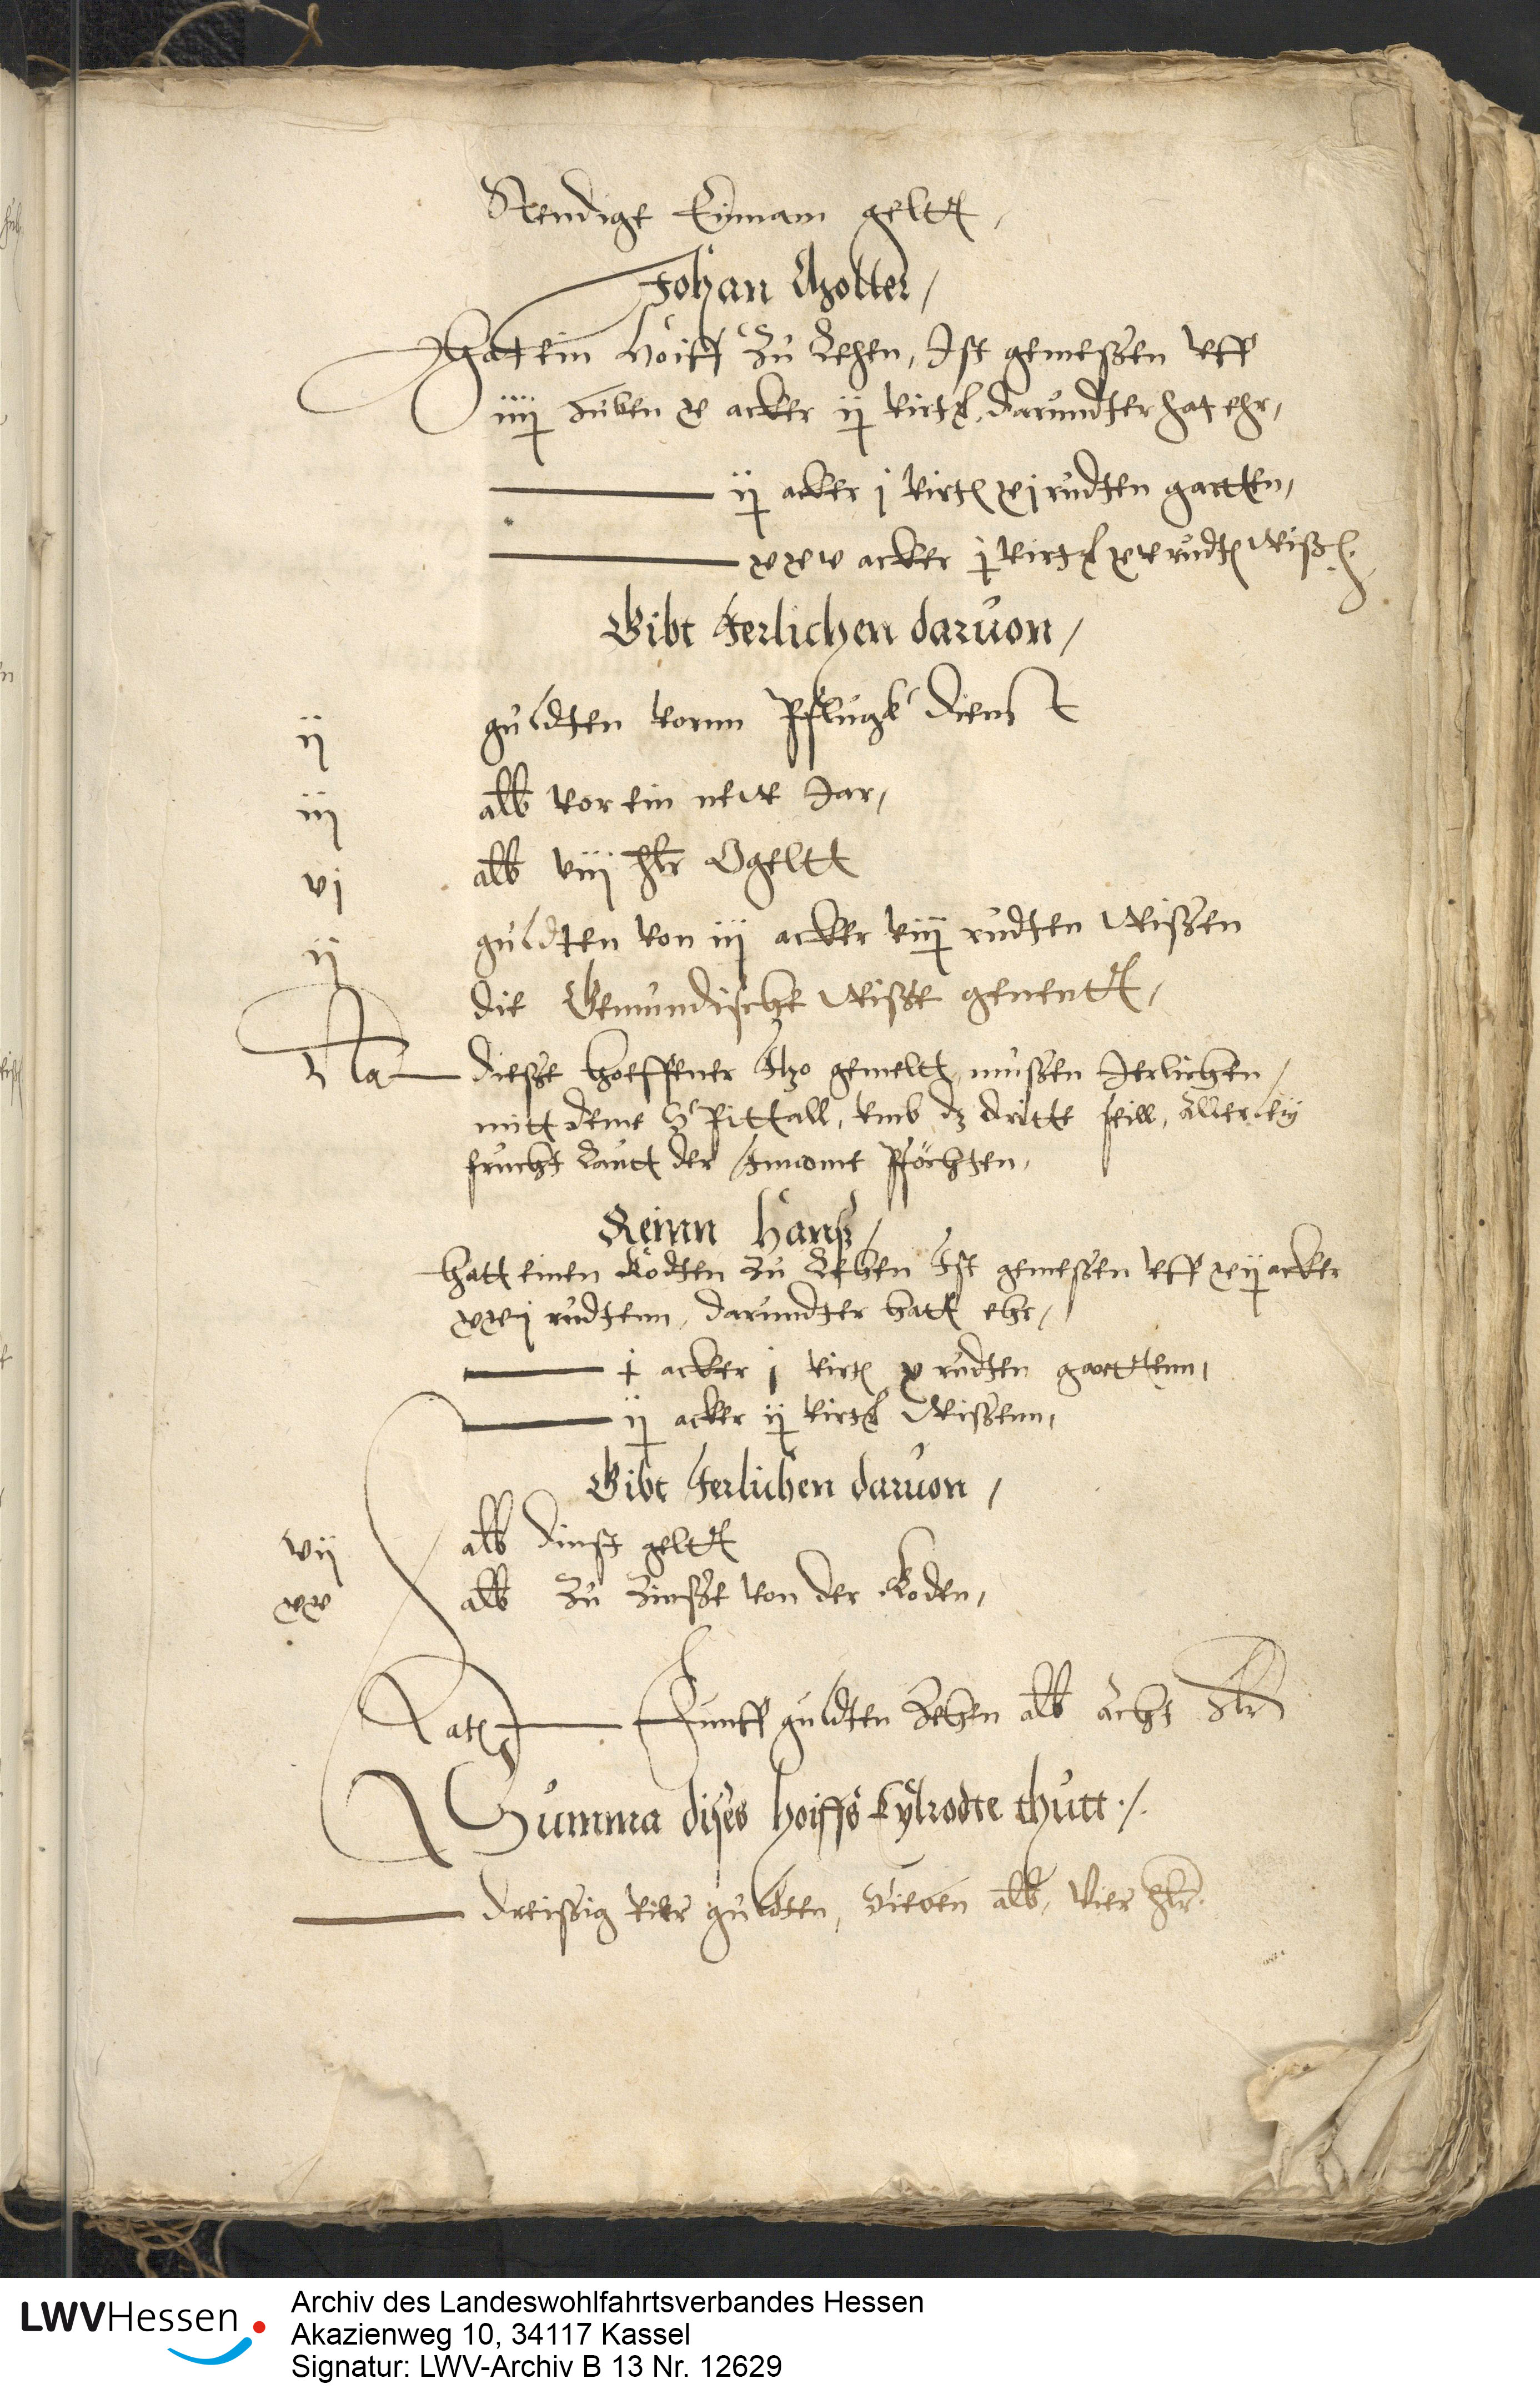 Stendige Einnam geltt,
Johan Cholter,
Hat ein hoiff zu Lehen, Ist gemessen uff
iiij huben x acker ij virtel, darundter hat ehr,
ij acker j virtel xj rudten gartten,
xxv acker j virtel xv rudten Wissen
Gibt Jerlichen daruon,
ij guldten vorm Pflugk dienst
iij alb vor ein new Jar,
vj alb viij hlr Ogeltt
ij guldten von iij acker viij rudten Wissen
die Gemundische Wisse genentt,
Na diesse hoeffener Itzo gemeltt, mussen Jerlichen,
mitt deme Spittall, umb dz dritte seill, allerleÿ
frucht Lautt der Innome Pfochten,
Reinn Hanß,
hatt einen Kodten zu Lehen Ist gemessen uff xij acker
xxj rudtenn, darundter hatt ehr,
j acker j virtel x rudten garttenn,
ij acker ij virtel Wissenn,
Gibt Jerlichen daruon,
vij alb dinst geltt
xx alb zu Zinsse von der Koden,
Latus Funff guldten Zehen alb acht hlr
Summa dises hoiffs Eÿlrodte thutt ./.
dreissig vier guldten, Sieben alb, Vier hlr.
LWVHessen
Archiv des Landeswohlfahrtsverbandes Hessen
Akazienweg 10, 34117 Kassel
Signatur: LWV-Archiv B 13 Nr. 12629